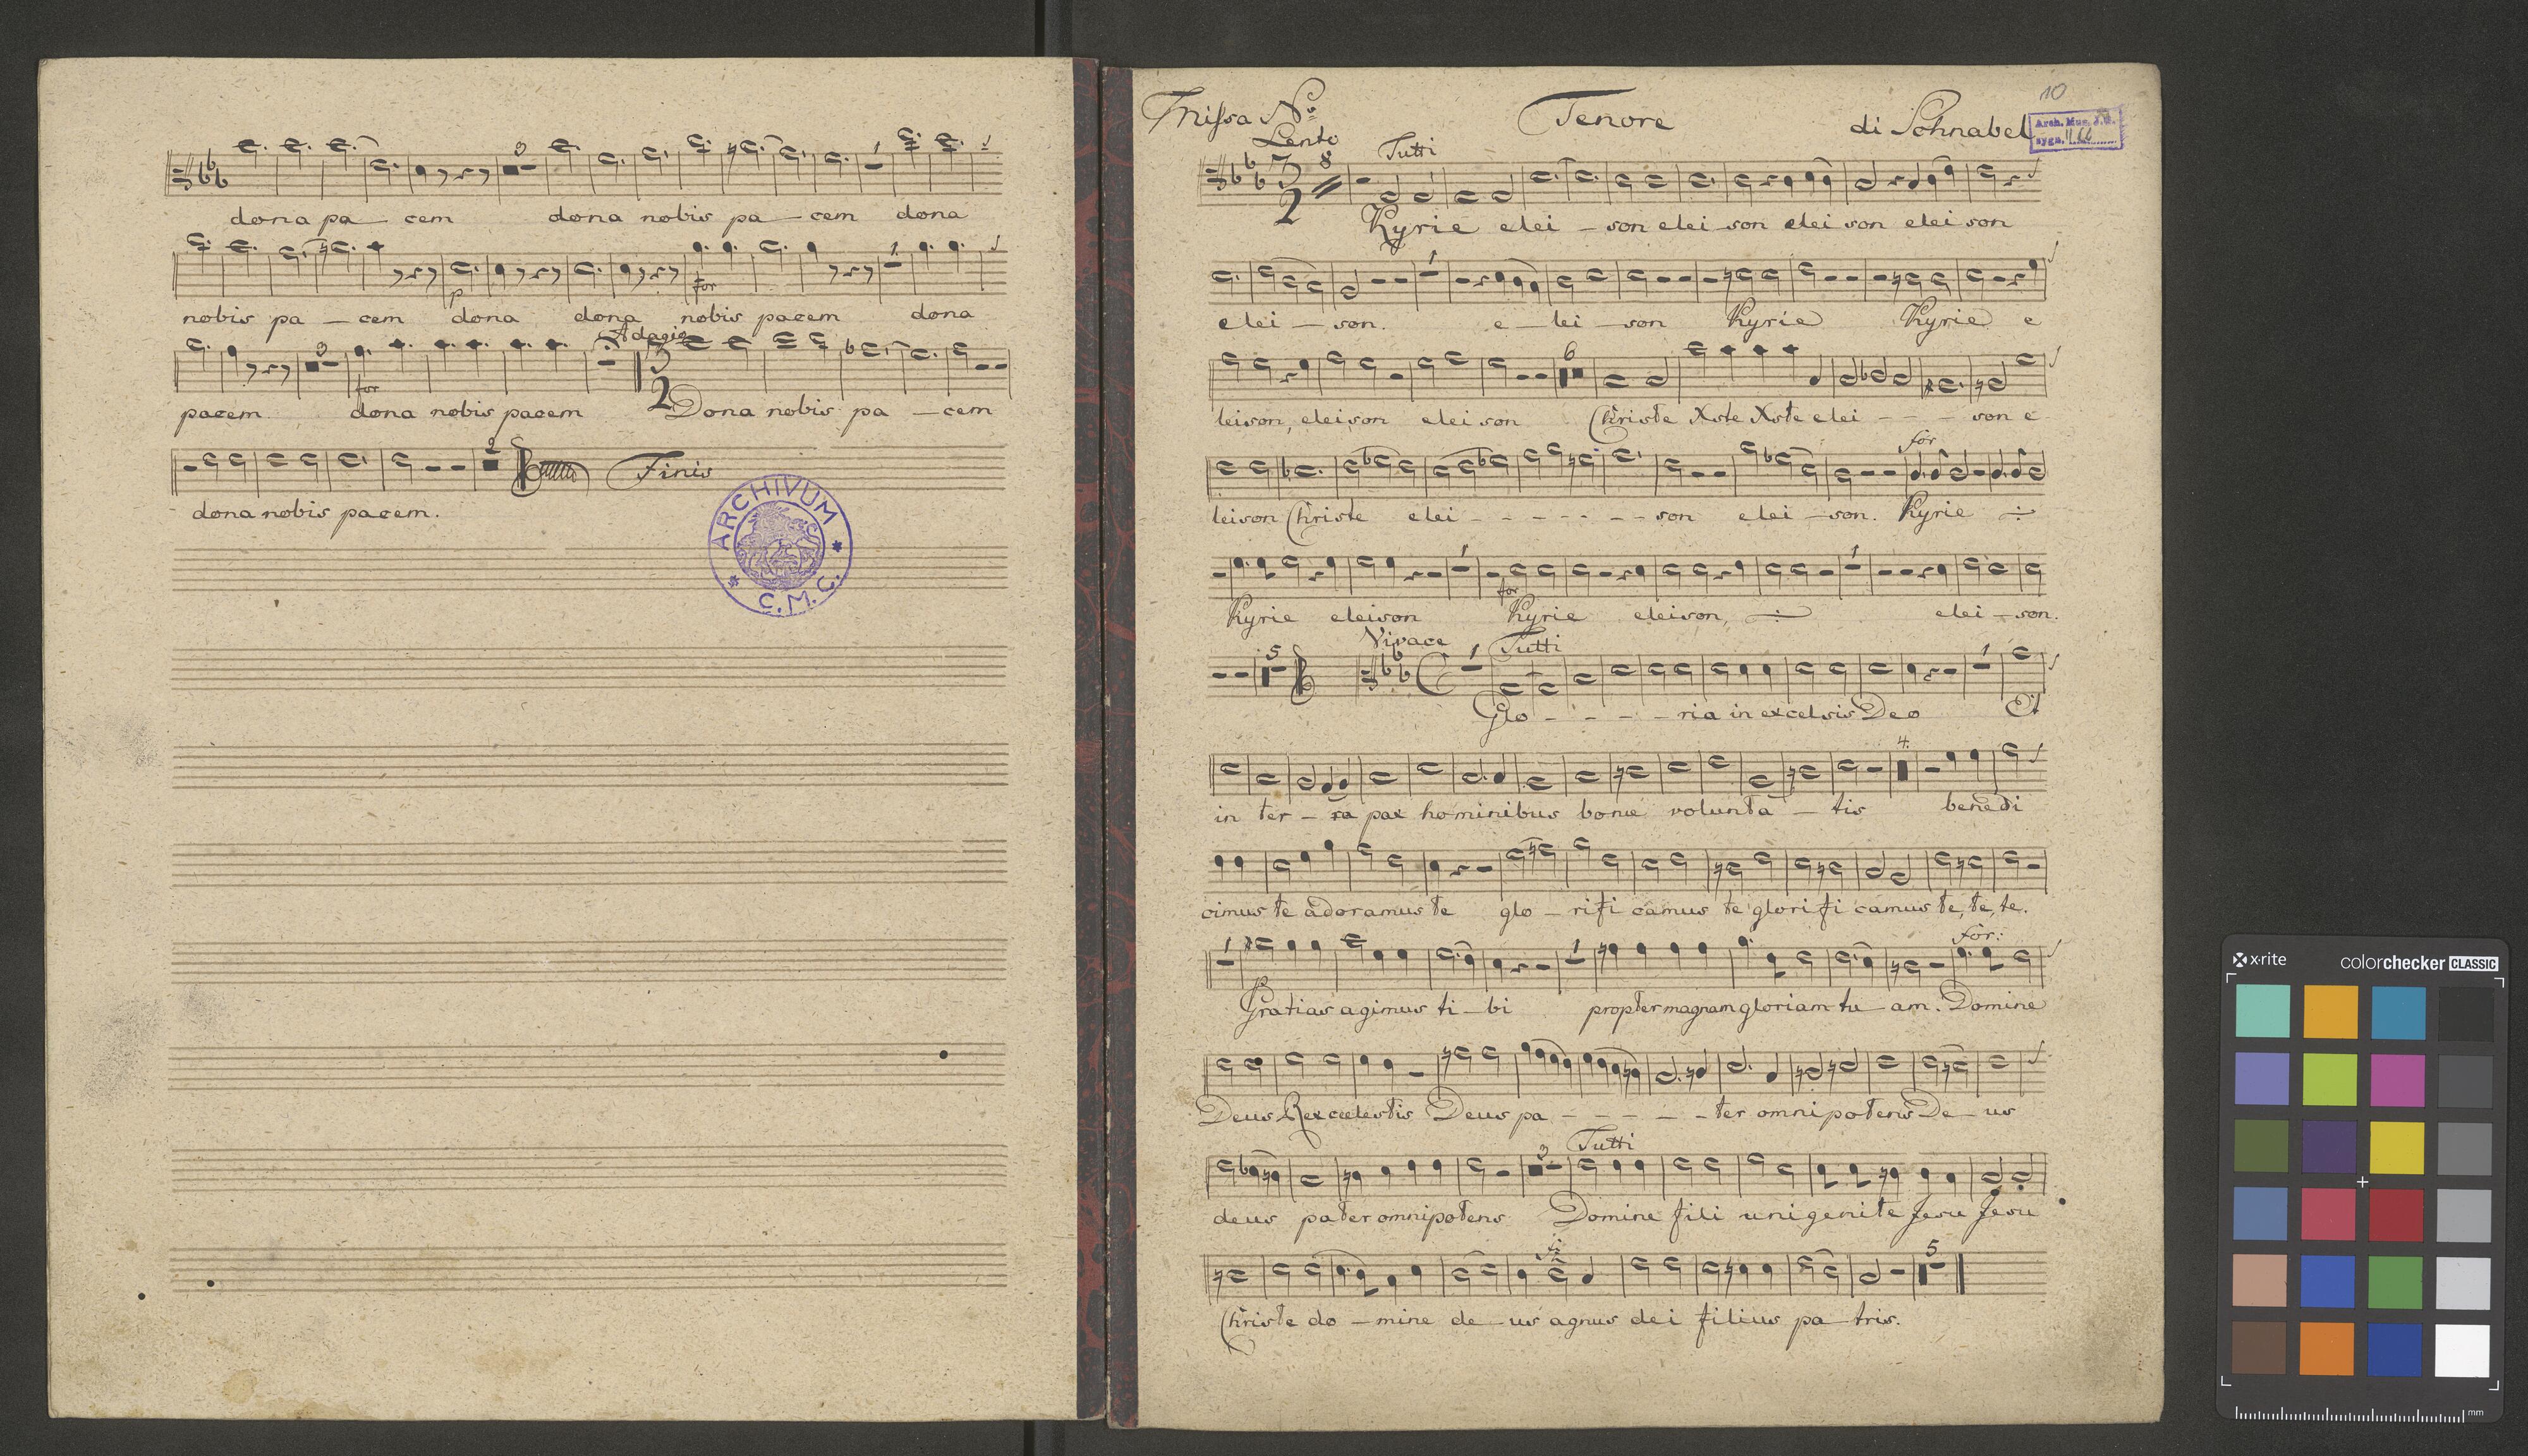 dona pa - cem dona nobis pa - cem dona
nobis pa - cem dona dona nobis pacem dona
p
for
Adagio
pacem dona nobis pacem Dona nobis pa - cem
for
Finis
dona nobis pacem.
ARCHIVUM
C. M. C.
10
Missa No Tenore di Schnabel
Arch. Mus. J. G.
sygn.
Lento
Tutti
8
Kyrie elei - son elei - son elei son elei son
elei - son. e - lei - son Kyrie Kyrie e
6
leison, eleison elei son Christe Xste Xste elei - - - son e
for
leison Christe elei - - - - - - son elei - son. Kyrie
Kyrie eleison Kyrie eleison, elei - son.
for
Vivace Tutti
5
Glo - - - - ria in excelsis Deo Et
4.
in ter - ra pax hominibus bonæ volunta - tis benedi
cimus te adoramus te glo - rifi camus te glorifi camus te, te, te.
for:
Gratias agimus ti - bi propter magnam gloriam tu - am. Domine
Deus Rex cœlestis Deus pa - - - - - ter omnipotens De - us
Tutti
deus pater omnipotens Domine fili unigenite Jesu Jesu
5
Christe do - mine de - us agnus dei filius pa - tris.
x·rite colorchecker CLASSIC
mm